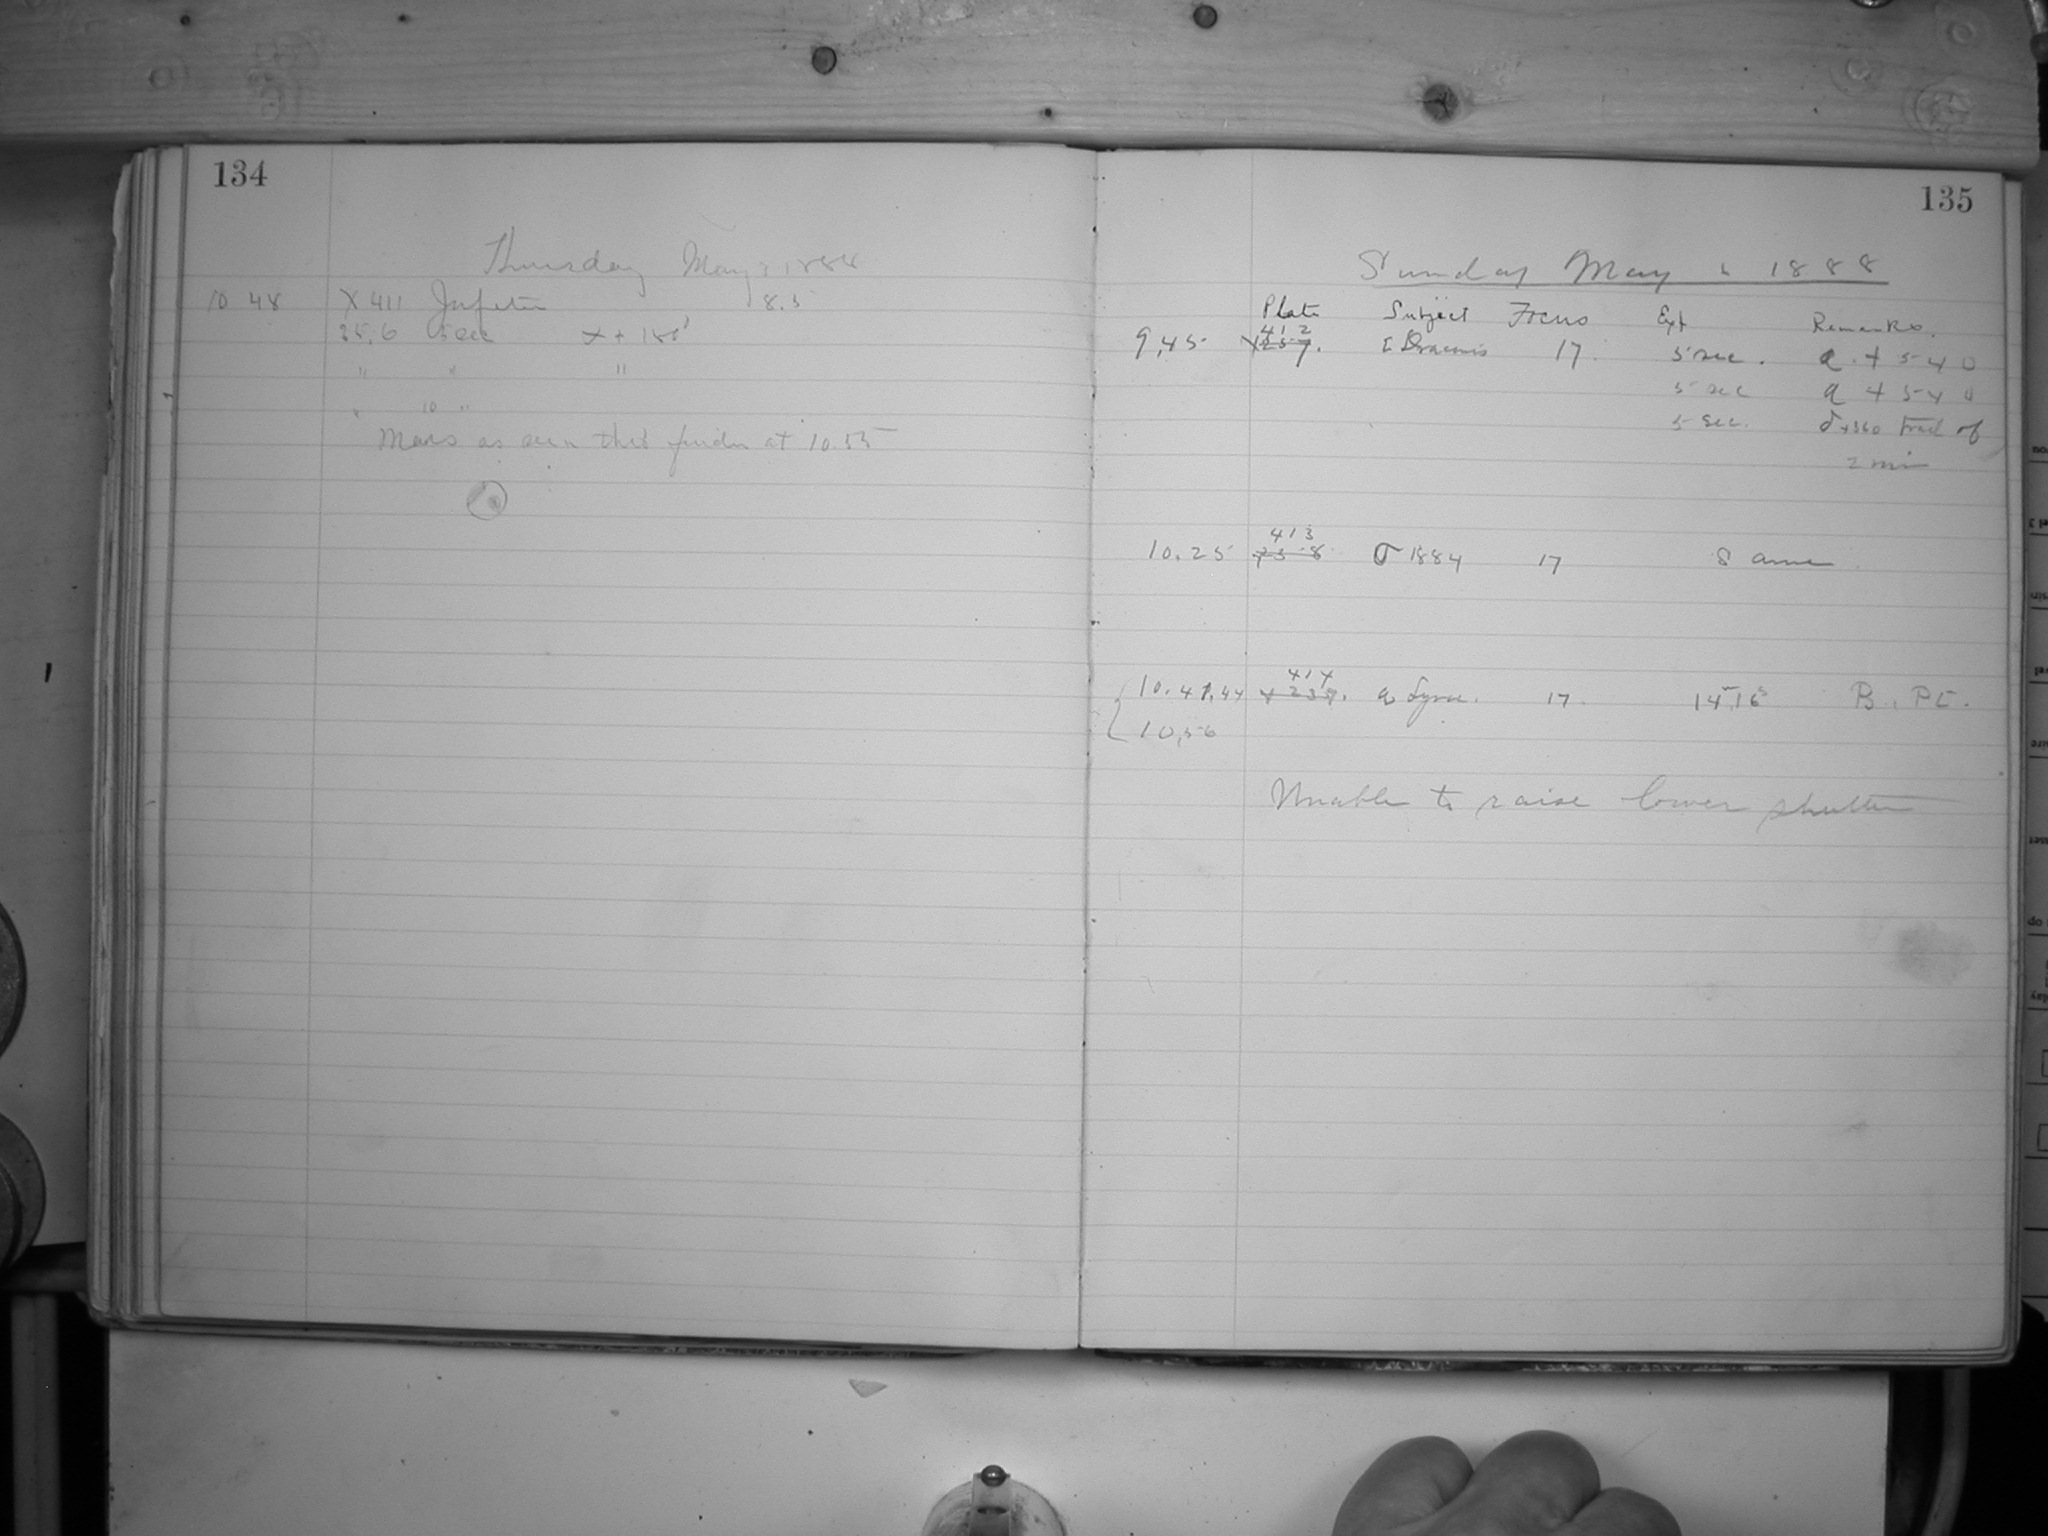 134
Thursday May 1888
10 48 X 411 Jupiter 8.5
25.6 5 sec x + 180'
" " "
" 10 "
Mars as seen thro' finder at 10.55
135
Sunday May 6 1888
Plate Subject Focus Exp Remarks.
412
9,45 X 237. Draconis 17. 5 sec. a + 540
5 sec a + 540
5 sec. δ+360 trail of
2 min
413
10.25 238 σ 1884 17 Same
414
10.47.44 X 239. α Lyrae. 17. B. Pl.
10,56
Unable to raise lower shutter